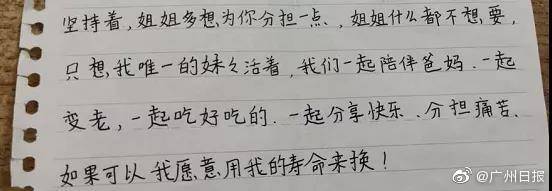 坚持着，姐姐多想为你分担一点，姐姐什么都不想要，
只想我唯一的妹々活着，我们一起陪伴爸妈．一起
变老，一起吃好吃的．一起分享快乐、分担痛苦、
如果可以我愿意用我的寿命来换！
@广州日报